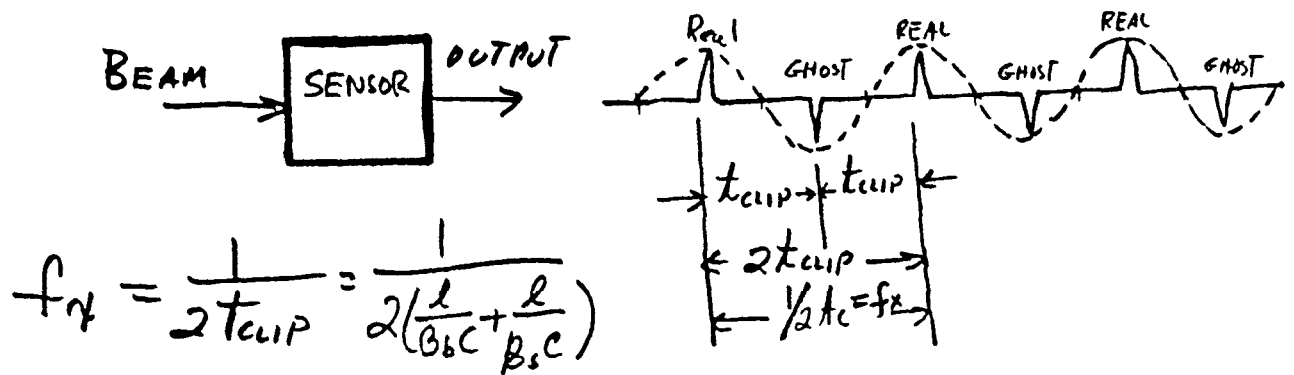 BEAM
SENSOR
OUTPUT
Real
GHOST
REAL
GHOST
REAL
GHOST
t_CLIP t_CLIP
2t_CLIP
1/2t_c = fx
f_x = 1/2t_CLIP = 1/2(l/β_bC + l/β_sC)